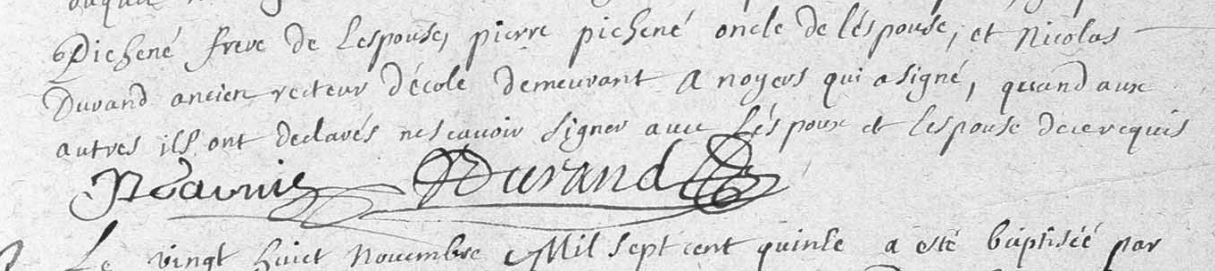 Pichené frere de Lespouse, pierre pichené oncle de léspouse, et Nicolas
Durand ancien recteur décole demeurant A noyers qui a signé, quand aux
autres ils ont declarés nescavoir signer avec Léspoux et Lespouse dece requis
Durand
Le vingt huict Novembre Mil sept cent quinse a esté baptiséé par